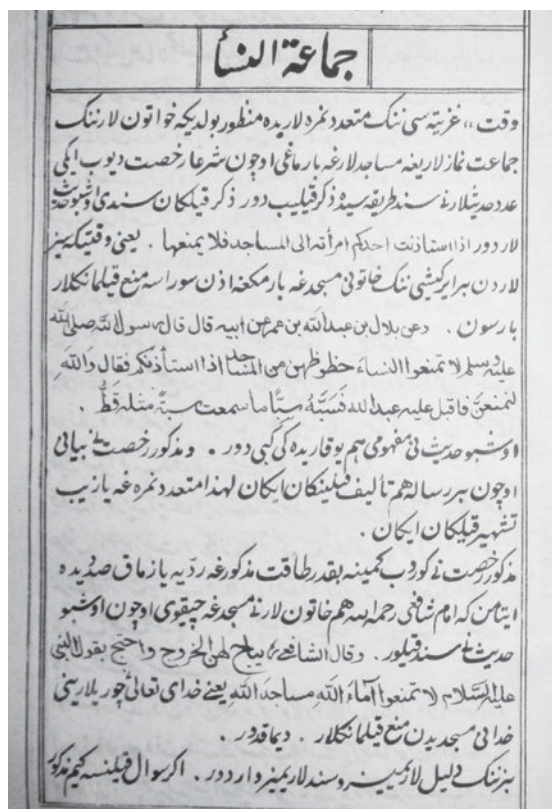 جماعة النسأ
وقت،، غزیته سی ننک متعدد نمره لاریده منظور بولدیکه خواتون لارننک
جماعت نماز لاریغه مساجد لارغه بارماغی اوچون شرعا رخصت دیوب ایکی
عدد حدیثلارنی سند طریقه سیده ذکر قیلیب دور ذکر قیلکان سندی اوشبو حدیث
لار دور اذا استاذنت احدکم امرأته الی المساجد فلا یمنعها . یعنی وقتیکه سیز
لاردن بر ایر کیشی ننک خاتونی مسجدغه بارمکغه اذن سوراسه منع قیلمانکلار
بارسون . وعن بلال بن عبدالله بن عمر عن ابیه قال قال رسول الله صلی الله
علیه وسلم لا تمنعوا النساء حظوظهن من المساجد اذا استأذنکم فقال والله
لنمنعن فاقبل علیه عبدالله فسبّه سبّا ما سمعت سبه مثله قطّ .
اوشبو حدیث نی مفهومی هم یوقاریده کی کبی دور . و مذکور رخصت نی بیانی
اوچون بر رساله هم تألیف قیلینکان ایکان لهذا متعدد نمره غه یازیب
تشهیر قیلکان ایکان .
مذکور رخصت نی کوروب کمینه بقدر طاقت مذکورغه ردیه یازماق صددیده
ایتامن که امام شافعی رحمه الله هم خاتون لارنی مسجدغه چیقوی اوچون اوشبو
حدیث نی سند قیلور . وقال الشافعی یباح لهن الخروج واحتج بقول النبی
علیه السلام لا تمنعوا آماء الله مساجد الله یعنی خدای تعالی نی چوریلارینی
خدانی مسجدیدن منع قیلمانکلار . دیماقدور .
بزننک دلیل لاریمیز و سند لاریمیز وار دور . اکر سوال قیلنسه کیم مذکور